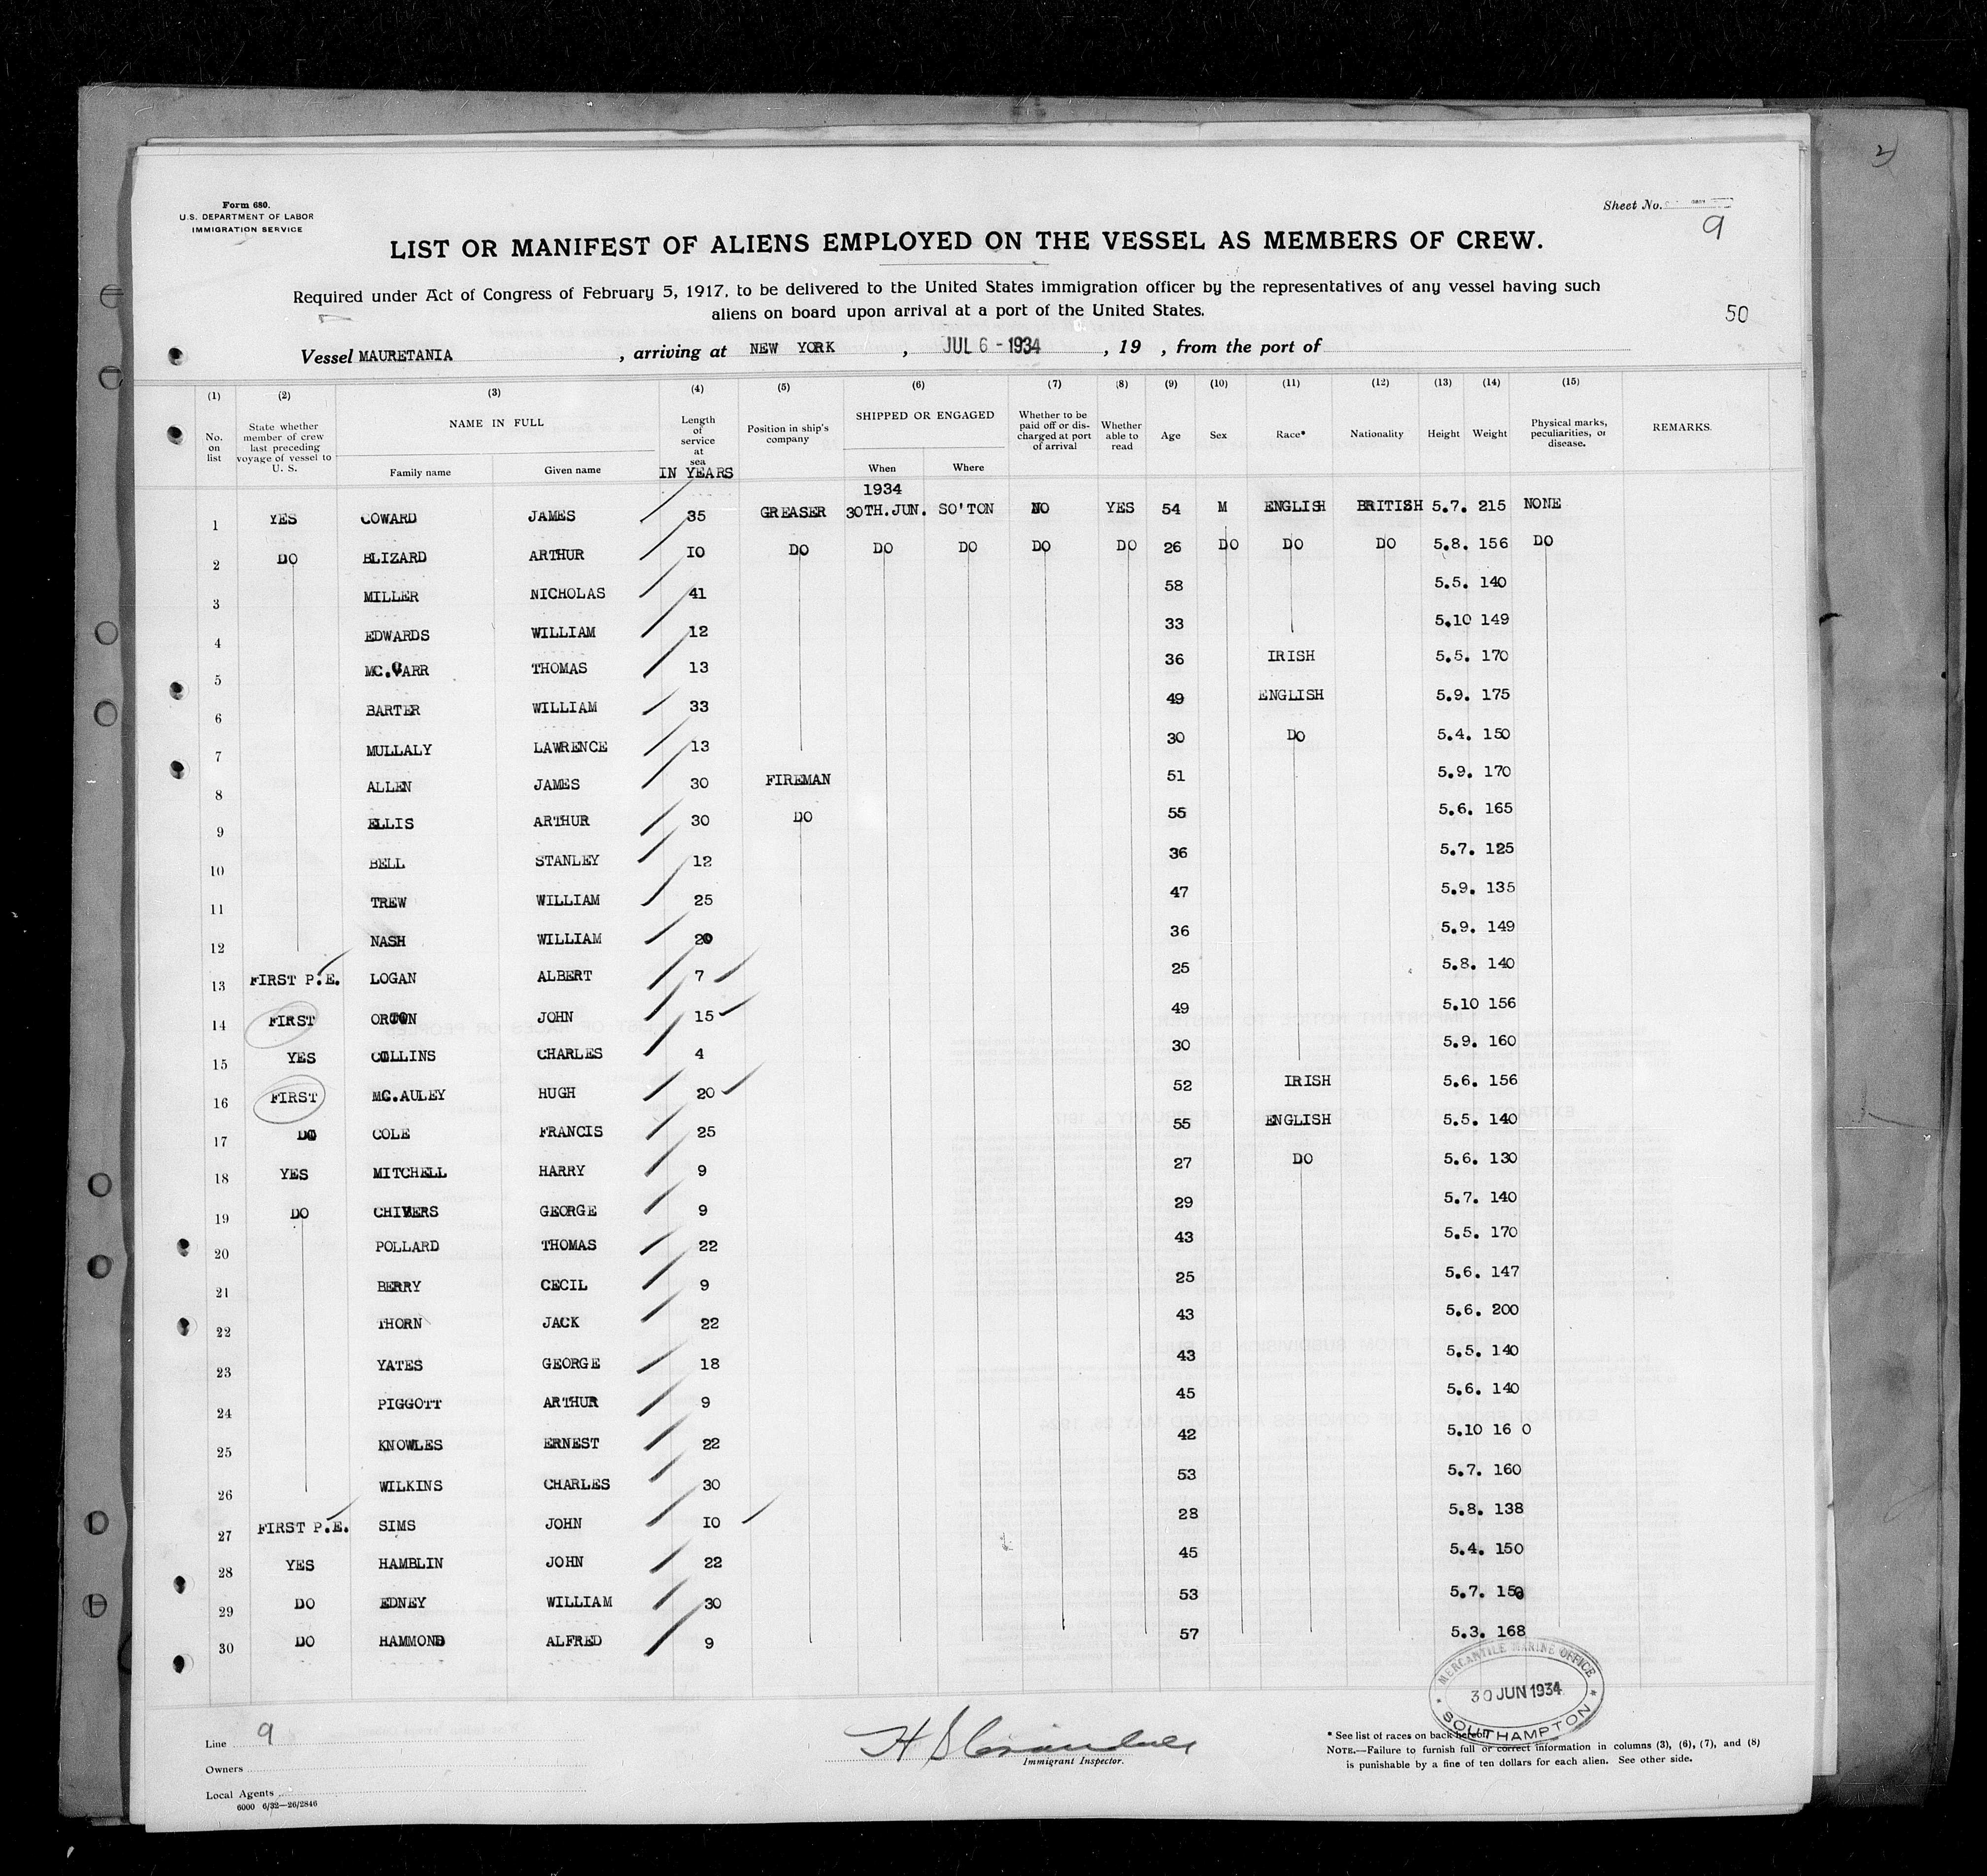 2
Form 680.
U.S. DEPARTMENT OF LABOR
IMMIGRATION SERVICE
Sheet No.
9
LIST OR MANIFEST OF ALIENS EMPLOYED ON THE VESSEL AS MEMBERS OF CREW.
Required under Act of Congress of February 5, 1917, to be delivered to the United States immigration officer by the representatives of any vessel having such
aliens on board upon arrival at a port of the United States.
50
Vessel MAURETANIA , arriving at NEW YORK , JUL 6 - 1934 , 19 , from the port of
(1) (2) (3) (4) (5) (6) (7) (8) (9) (10) (11) (12) (13) (14) (15)
No. on list State whether member of crew last preceding voyage of vessel to U. S. NAME IN FULL Length of service at sea IN YEARS Position in ship's company SHIPPED OR ENGAGED Whether to be paid off or discharged at port of arrival Whether able to read Age Sex Race* Nationality Height Weight Physical marks, peculiarities, or disease. REMARKS.
Family name Given name When Where
1934
1 YES COWARD JAMES 35 GREASER 30TH.JUN. SO'TON NO YES 54 M ENGLISH BRITISH 5.7. 215 NONE
2 DO BLIZARD ARTHUR 10 DO DO DO DO DO 26 DO DO DO 5.8. 156 DO
3 MILLER NICHOLAS 41 58 5.5. 140
4 EDWARDS WILLIAM 12 33 5.10 149
5 MC.CARR THOMAS 13 36 IRISH 5.5. 170
6 BARTER WILLIAM 33 49 ENGLISH 5.9. 175
7 MULLALY LAWRENCE 13 30 DO 5.4. 150
8 ALLEN JAMES 30 FIREMAN 51 5.9. 170
9 ELLIS ARTHUR 30 DO 55 5.6. 165
10 BELL STANLEY 12 36 5.7. 125
11 TREW WILLIAM 25 47 5.9. 135
12 NASH WILLIAM 20 36 5.9. 149
13 FIRST P.E. LOGAN ALBERT 7 25 5.8. 140
14 FIRST ORTON JOHN 15 49 5.10 156
15 YES COLLINS CHARLES 4 30 5.9. 160
16 FIRST MC.AULEY HUGH 20 52 IRISH 5.6. 156
17 DO COLE FRANCIS 25 55 ENGLISH 5.5. 140
18 YES MITCHELL HARRY 9 27 DO 5.6. 130
19 DO CHIVERS GEORGE 9 29 5.7. 140
20 POLLARD THOMAS 22 43 5.5. 170
21 BERRY CECIL 9 25 5.6. 147
22 THORN JACK 22 43 5.6. 200
23 YATES GEORGE 18 43 5.5. 140
24 PIGGOTT ARTHUR 9 45 5.6. 140
25 KNOWLES ERNEST 22 42 5.10 16 0
26 WILKINS CHARLES 30 53 5.7. 160
27 FIRST P.E. SIMS JOHN 10 28 5.8. 138
28 YES HAMBLIN JOHN 22 45 5.4. 150
29 DO EDNEY WILLIAM 30 53 5.7. 150
30 DO HAMMOND ALFRED 9 57 5.3. 168
MERCANTILE MARINE OFFICE
30 JUN 1934
SOUTHAMPTON
Line 9
Owners
Local Agents
6000 6/32—26/2846
Immigrant Inspector.
* See list of races on back hereof.
NOTE.—Failure to furnish full or correct information in columns (3), (6), (7), and (8)
is punishable by a fine of ten dollars for each alien. See other side.